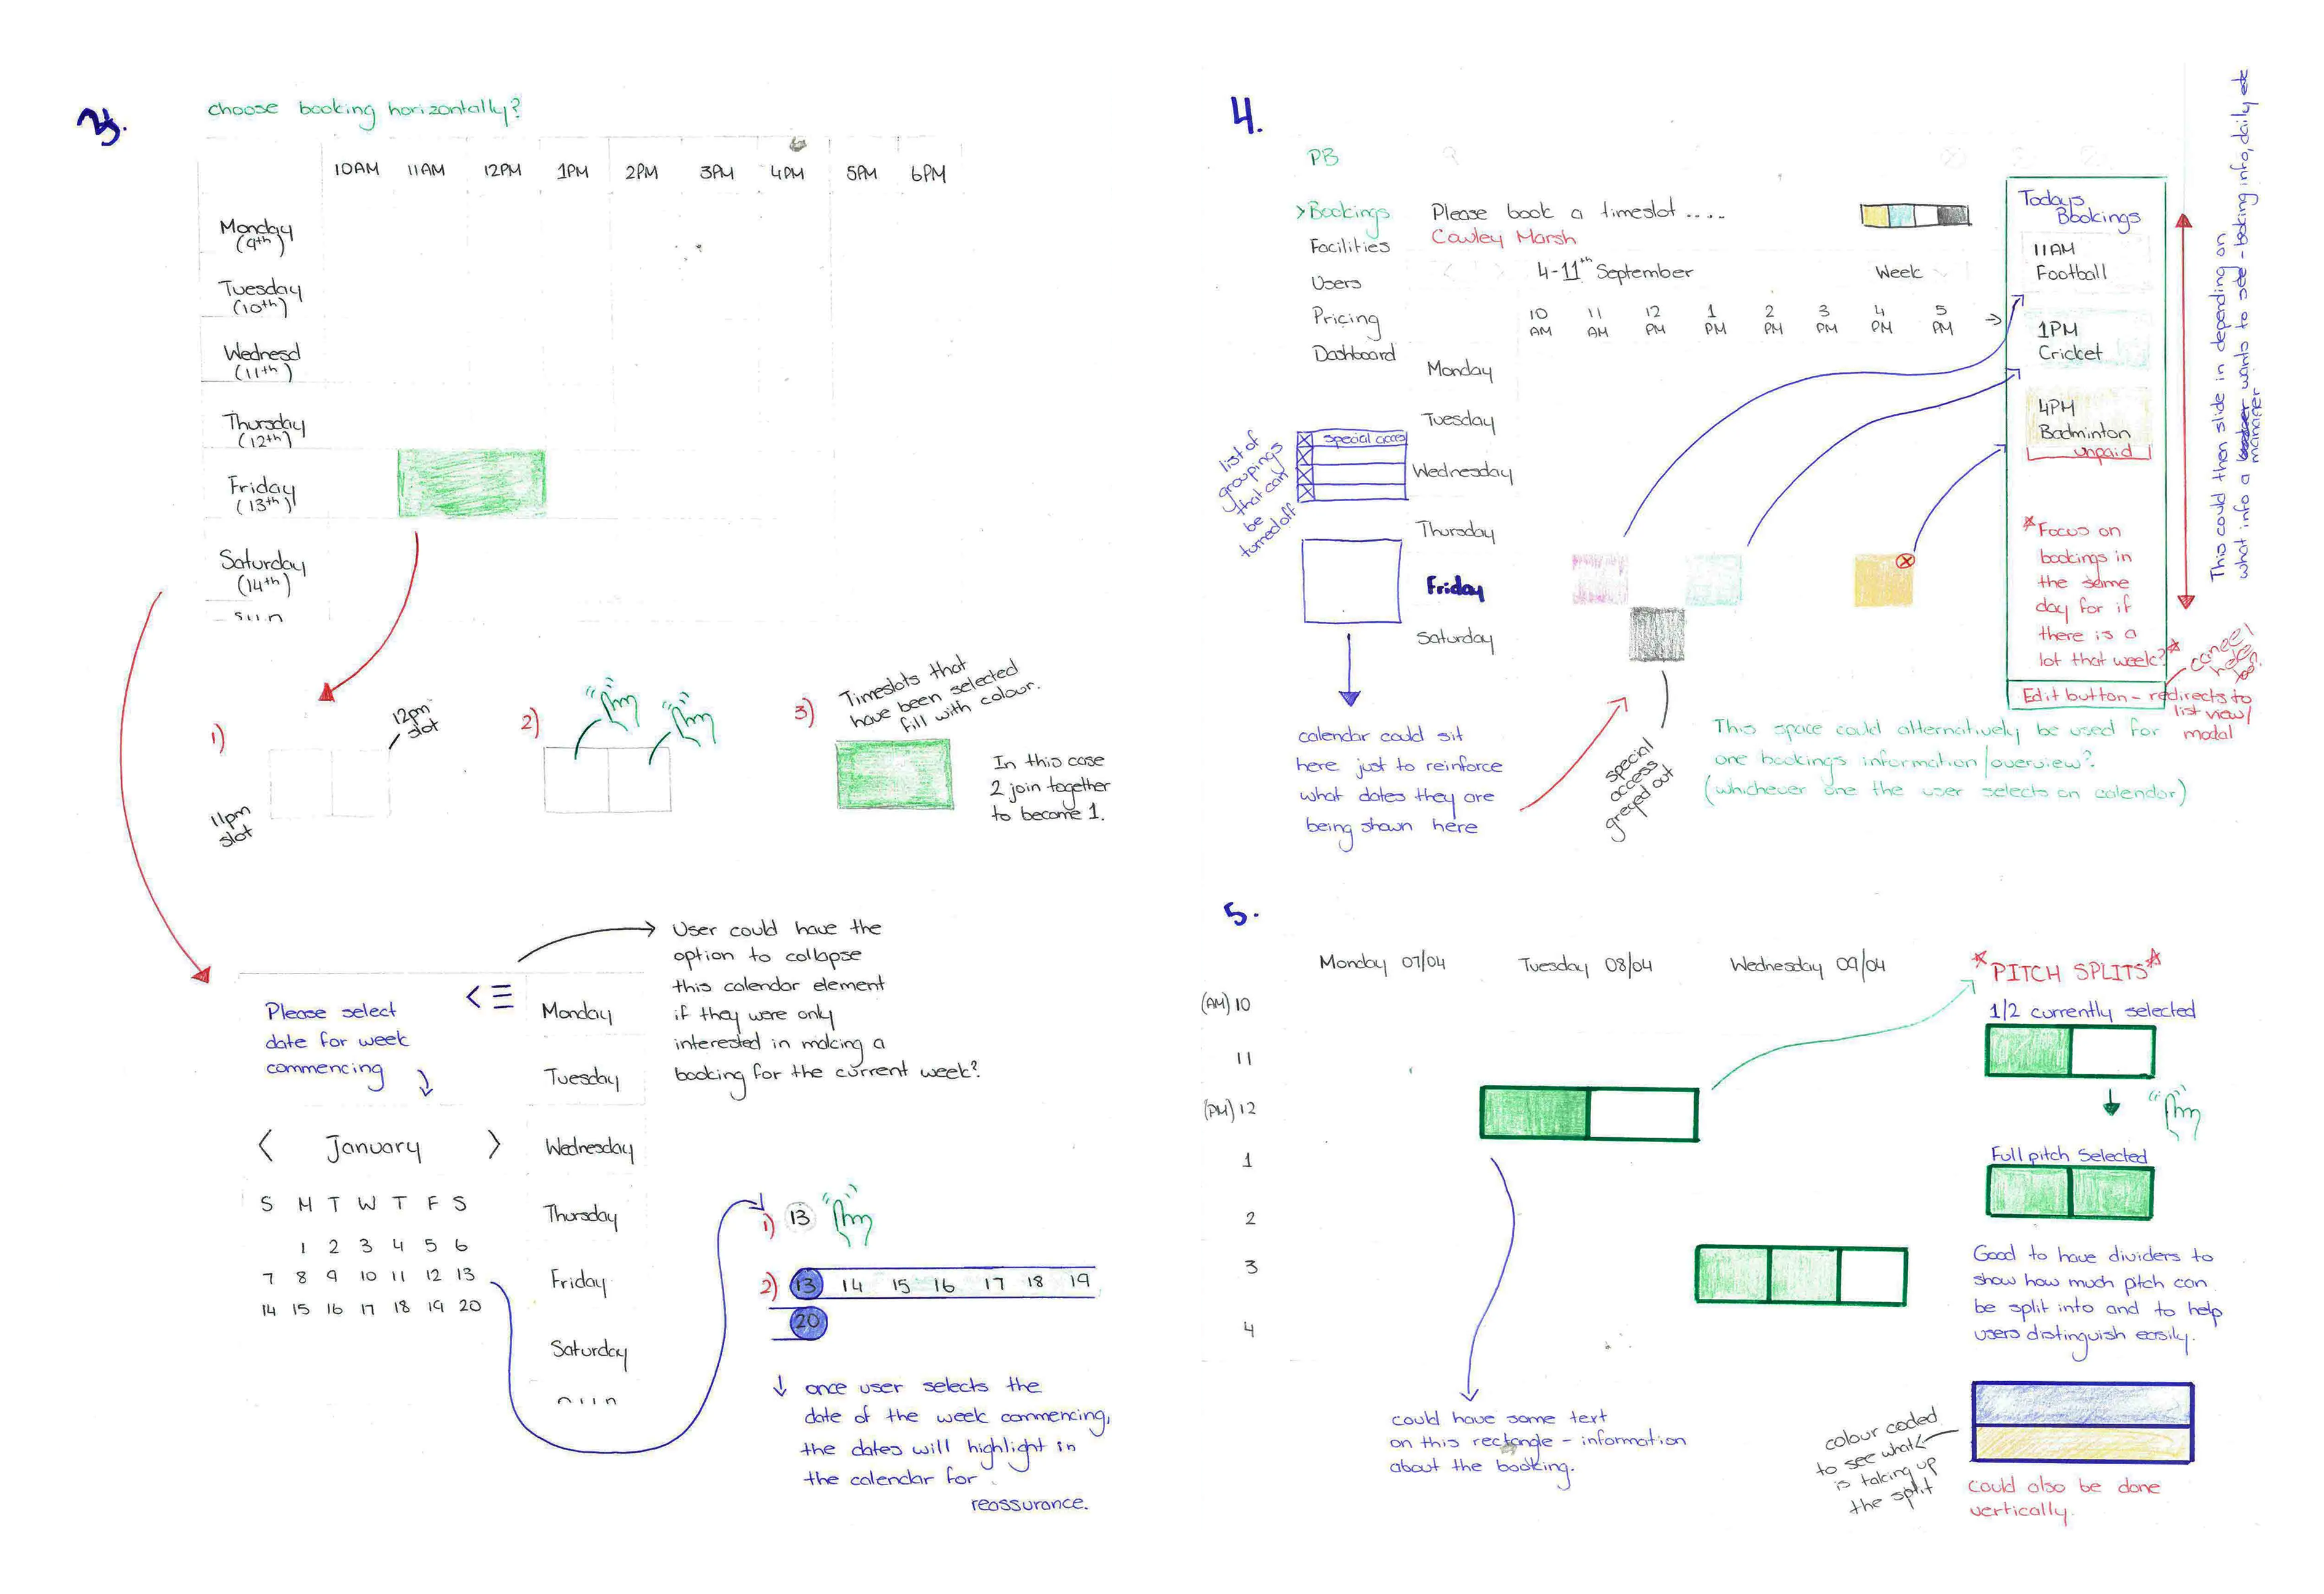 3.
choose booking horizontally?
10AM 11AM 12PM 1PM 2PM 3PM 4PM 5PM 6PM
Monday
(9th)
Tuesday
(10th)
Wednesd
(11th)
Thursday
(12th)
Friday
(13th)
Saturday
(14th)
1)
12pm
slot
11pm
slot
2)
3)
Timeslots that
have been selected
fill with colour.
In this case
2 join together
to become 1.
Please select
date for week
commencing
< January >
S M T W T F S
1 2 3 4 5 6
7 8 9 10 11 12 13
14 15 16 17 18 19 20
Monday
Tuesday
Wednesday
Thursday
Friday
Saturday
User could have the
option to collapse
this calendar element
if they were only
interested in making a
booking for the current week?
1) 13
2) 13 14 15 16 17 18 19
20
once user selects the
date of the week commencing,
the dates will highlight in
the calendar for
reassurance.
4.
PB
>Bookings
Facilities
Users
Pricing
Dashboard
Please book a timeslot....
Cowley Marsh
4-11th September
Week
10 AM 11 AM 12 PM 1 PM 2 PM 3 PM 4 PM 5 PM
Monday
Tuesday
Wednesday
Thursday
Friday
Saturday
list of
groupings
that can
be
turned off
special acces
calendar could sit
here just to reinforce
what dates they are
being shown here
special
access
greyed out
Todays
Bookings
11AM
Football
1PM
Cricket
4PM
Badminton
unpaid
*Focus on
bookings in
the same
day for if
there is a
lot that week?*
Edit button - redirects to
list view/
modal
cancel
here
too?
This could then slide in depending on
what info a manager wants to see - booking info, daily etc
This space could alternatively be used for
one bookings information/overview?
(whichever one the user selects on calendar)
5.
Monday 07/04 Tuesday 08/04 Wednesday 09/04
(AM) 10
11
(PM) 12
1
2
3
4
could have some text
on this rectangle - information
about the booking.
*PITCH SPLITS*
1/2 currently selected
Full pitch Selected
Good to have dividers to
show how much pitch can
be split into and to help
users distinguish easily.
colour coded
to see what
is taking up
the split
could also be done
vertically.